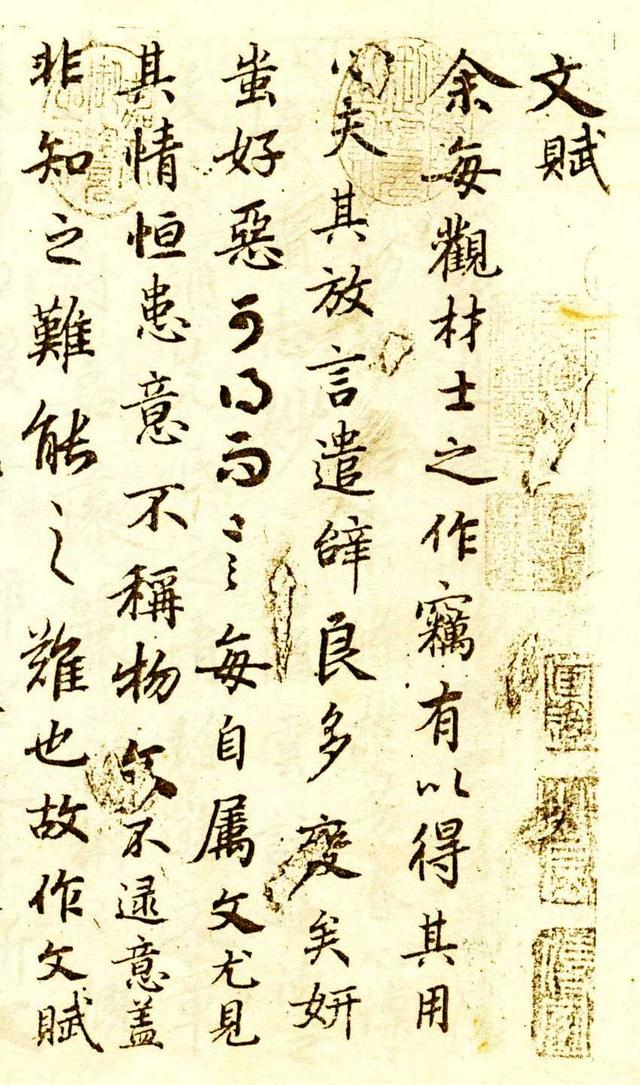 文賦
余每觀材士之作竊有以得其用
心夫其放言遣辭良多變矣妍
蚩好惡可得而言每自屬文尤見
其情恒患意不稱物文不逮意蓋
非知之難能之難也故作文賦